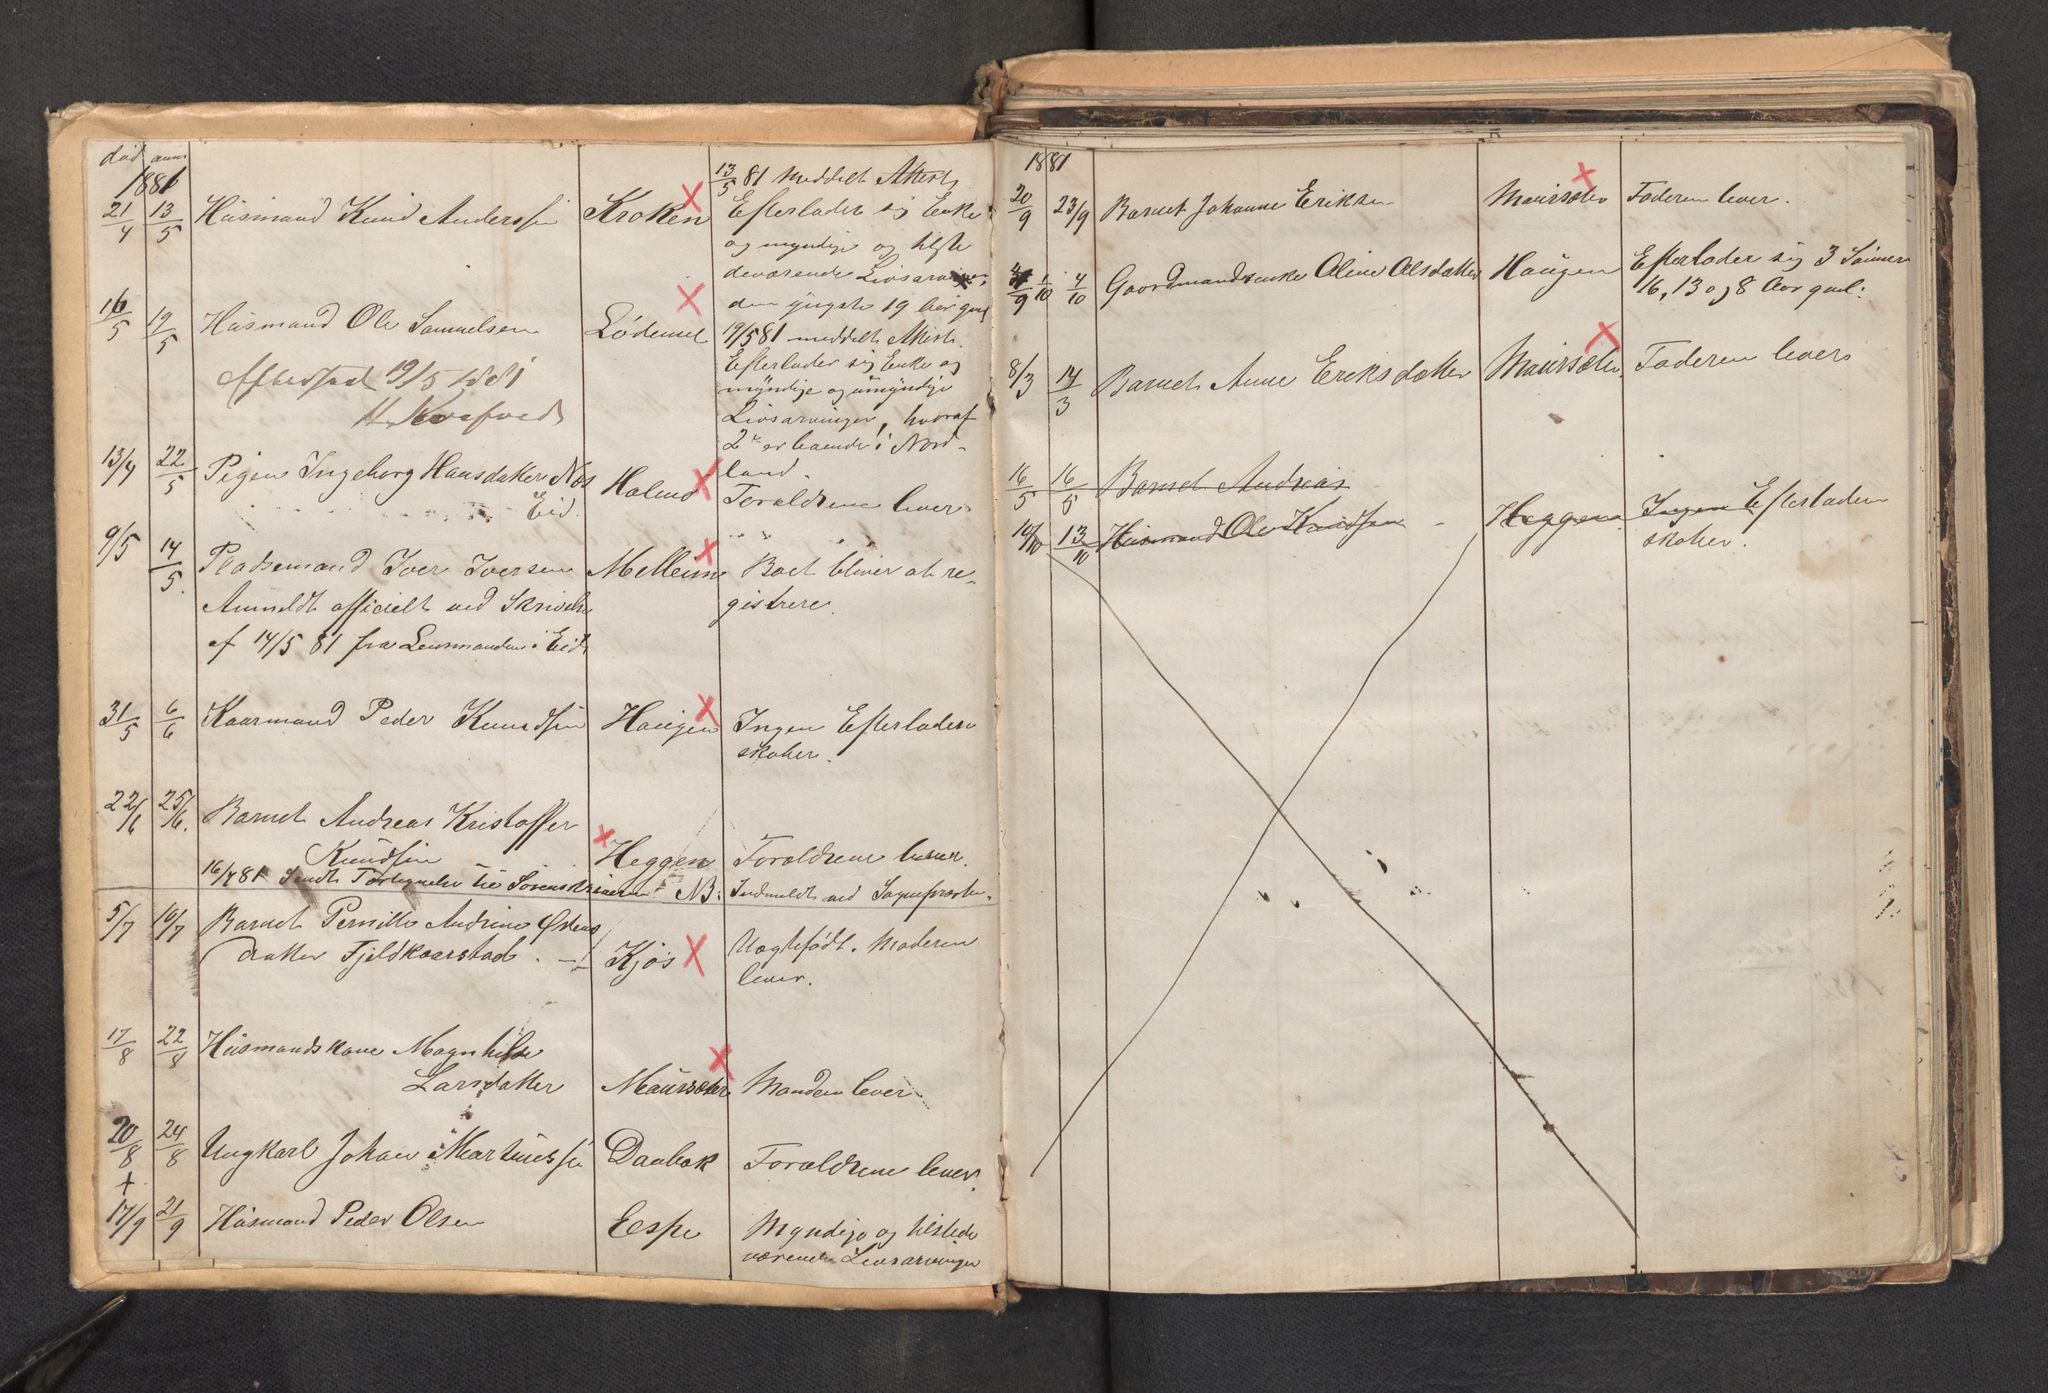 død anm
1881
21/4 13/5 Huusmand Knud Anderssen Kroken 13/5 81 meddelt Attest.
Efterlader sig Enke
og myndige og tilste
deværende Livsarvinger,
den yngste 19 Aar gml
16/5 19/5 Huusmand Ole Samuelsen Lødemel 19/5 81 meddelt Attest.
Efterlader sig Enke og
Afhersted 19/5 1881 myndige og umyndige
Livsarvinger, hvoraf
2de er boende i Nord-
land.
13/4 22/5 Pigen Ingeborg Hansdatter Næs Holmø Forældrene lever
Eid.
9/5 14/5 Pladsemand Iver Iversen Mellem Boet bliver at re-
Anmeldt officielt ved Skrivelse gistrere.
af 14/5 81 fra Lensmanden i Eid
31/5 6/6 Kaarmand Peder Knudsen Haugen Ingen Efterladen
skaber.
22/6 25/6 Barnet Andreas Kristoffer
Knudsen Heggen Forældrene lever.
16/7 81 Sendt Fortegnelse til Sorenskriveren NB: Indmeldt ved Sognepræsten.
5/7 10/7 Barnet Pernille Andrine Østens
datter Fjeldkaarstad Kjøs Uægtefødt. Moderen
lever.
17/8 22/8 Huusmandskone Magnhilde
Larsdatter Maursæter Manden lever
20/8 24/8 Ungkarl Johan Martinussen Danbak Forældrene lever.
17/9 21/9 Huusmand Peder Olsen Eespe Myndige og tilstede
værende Livsarvinger
1881
20/9 23/9 Barnet Johanne Eriksen Maursæter Faderen lever.
1/10 4/10 Gaardmandsenke Oline Olsdatter Haugen Efterlader sig 3 Sønner
16, 13 og 8 Aar gml:
8/3 14/3 Barnet Anne Eriksdatter Maursæter Faderen lever
16/5 16/5 Barnet Andreas
10/10 13/10 Huusmand Ole Knudsen - Heggen Ingen Efterladen
skaber.